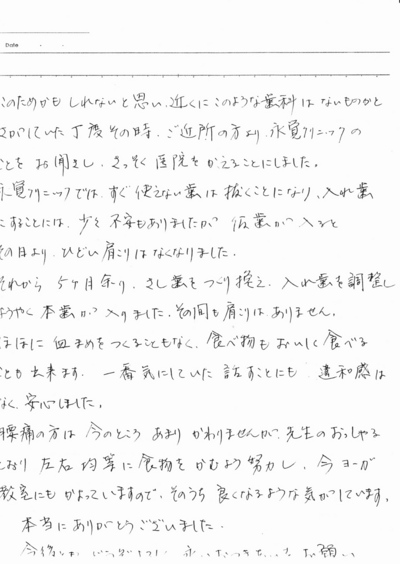 Date
このためかもしれないと思い、近くにこのような歯科はないものかと
さがしていた丁度その時、ご近所の方より、永覚クリニックの
ことをお聞きし、さっそく医院をかえることにしました。
永覚クリニックでは、すぐ使えない歯は抜くことになり、入れ歯
にすることには、少々不安もありましたが 仮歯が入ると
その日より、ひどい肩こりはなくなりました。
それから 5ヶ月余り、さし歯をつくり換え、入れ歯を調整し
ようやく本歯が入りました。その間も肩こりは、ありません。
ほほに血まめをつくることもなく、食べ物もおいしく食べる
ことも出来ます。一番気にしていた 話すことにも 違和感は
なく、安心しました。
腰痛の方は 今のところ あまり かわりませんが、先生のおっしゃる
とおり 左右 均等に 食物を かむよう 努力し、今 ヨーガ
教室にも かよっていますので、そのうち 良くなるような気がしています。
本当に ありがとうございました。
今後とも